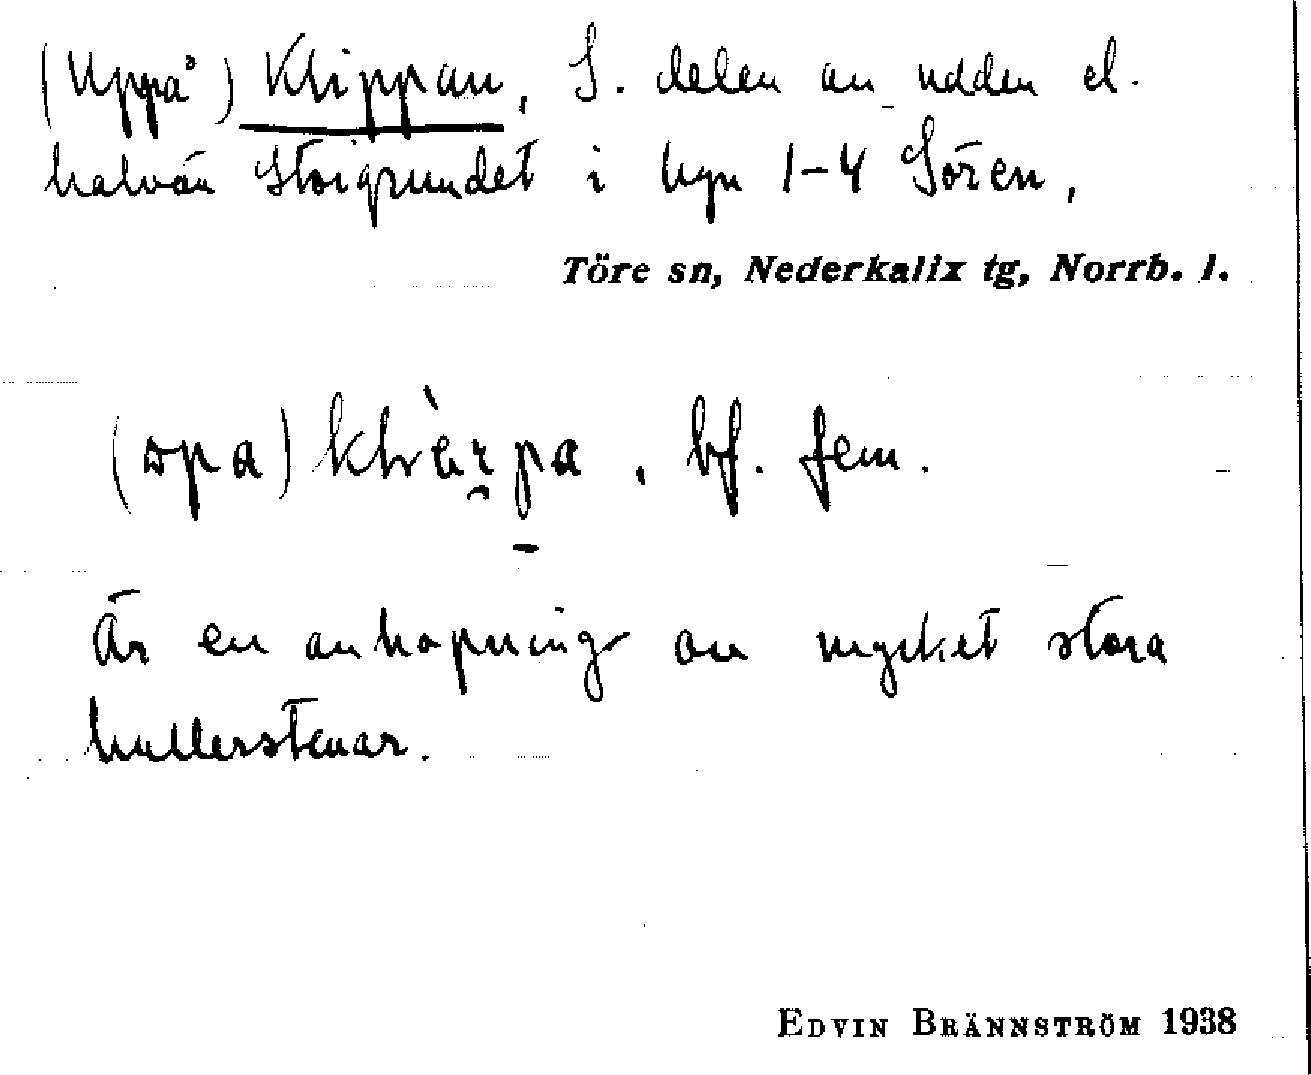 (Uppå) Klippan, S. delen av udden el.
halvön Storgrundet i hgn 1-4 Sören,
Töre sn, Nederkalix tg, Norrb. l.
bf. fem.
Är en anhopning av mycket stora
kullerstenar.
EDVIN BRÄNNSTRÖM 1938